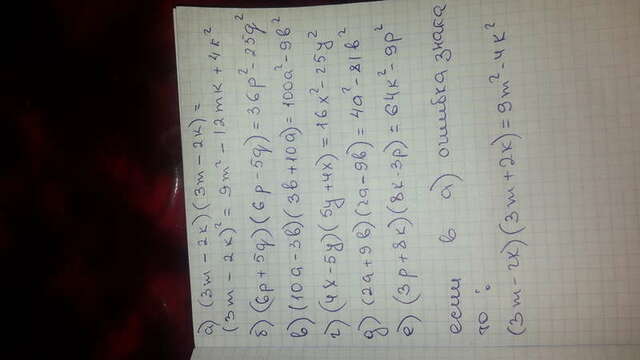 а) (3m - 2k)(3m - 2k) =
(3m - 2k)² = 9m² - 12mk + 4k²
б) (6p + 5q)(6p - 5q) = 36p² - 25q²
в) (10a - 3b)(3b + 10a) = 100a² - 9b²
г) (4x - 5y)(5y + 4x) = 16x² - 25y²
д) (2a + 9b)(2a - 9b) = 4a² - 81b²
е) (3p + 8k)(8k - 3p) = 64k² - 9p²
если в а) ошибка знака
то :
(3m - 2k)(3m + 2k) = 9m² - 4k²